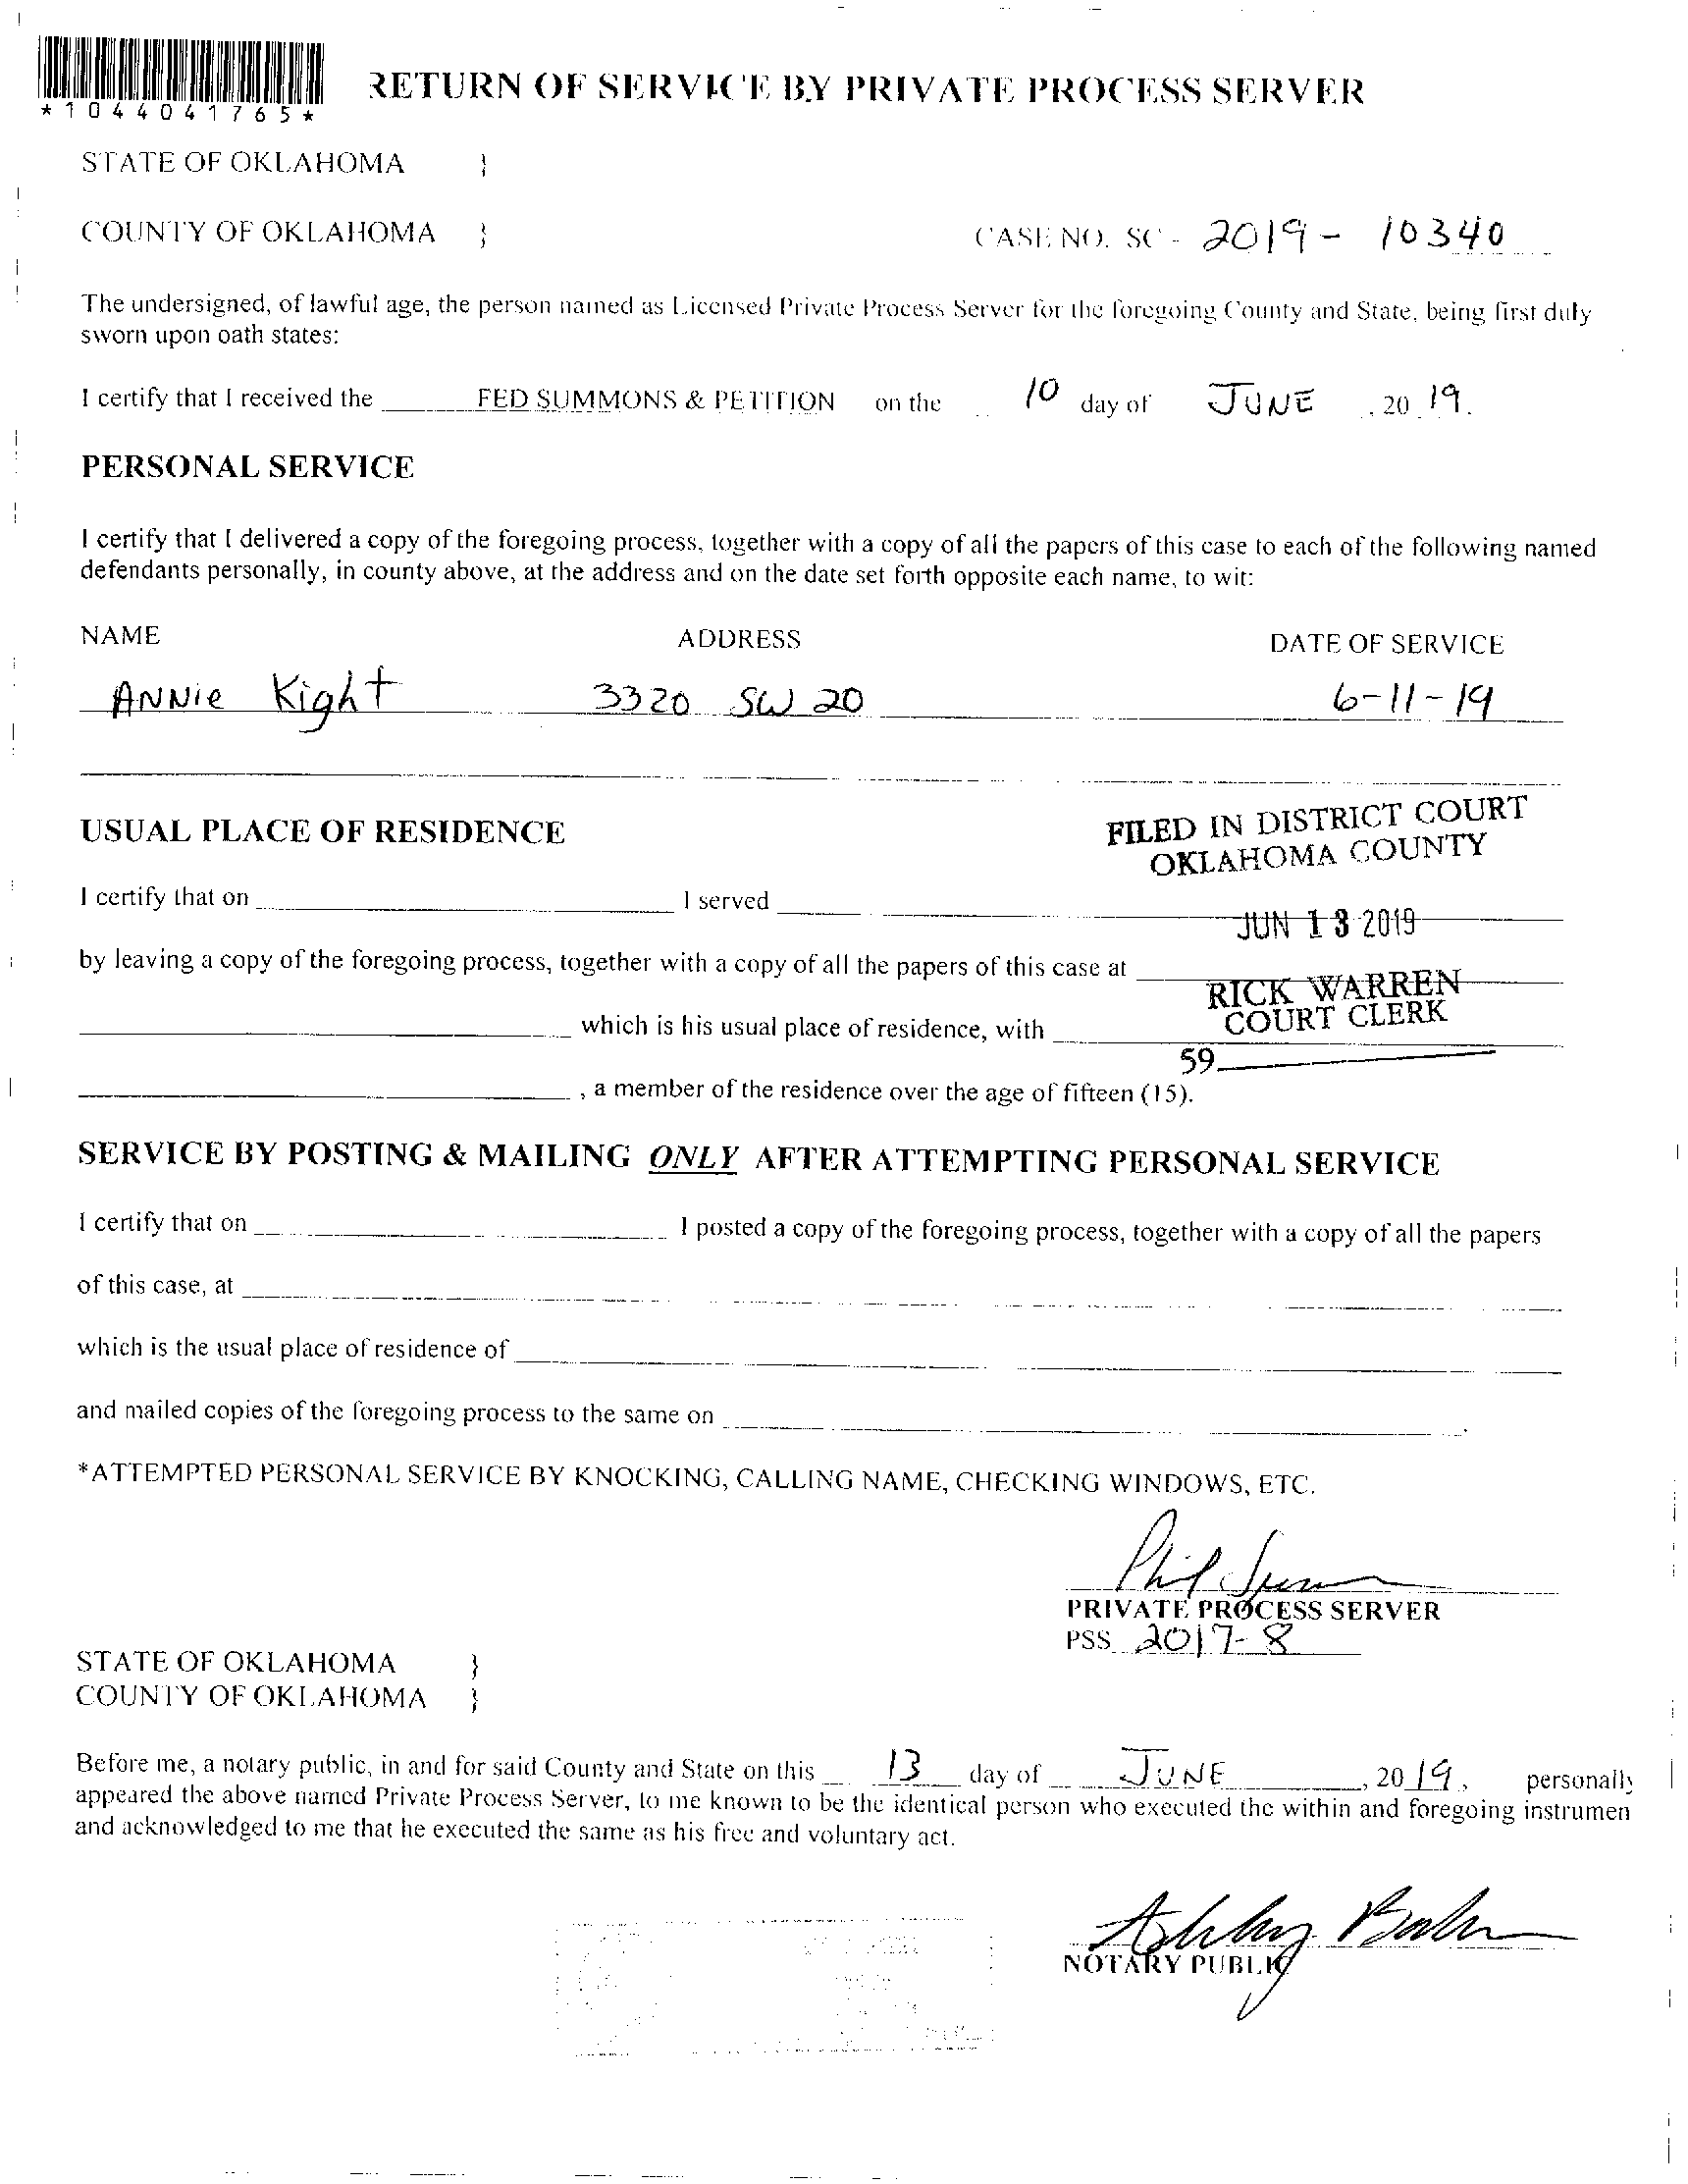 *1044041765*
RETURN OF SERVICE BY PRIVATE PROCESS SERVER
STATE OF OKLAHOMA }
COUNTY OF OKLAHOMA } CASE NO. SC - 2019 - 10340
The undersigned, of lawful age, the person named as Licensed Private Process Server for the foregoing County and State, being first duly
sworn upon oath states:
I certify that I received the FED SUMMONS & PETITION on the 10 day of JUNE, 20 19.
PERSONAL SERVICE
I certify that I delivered a copy of the foregoing process, together with a copy of all the papers of this case to each of the following named
defendants personally, in county above, at the address and on the date set forth opposite each name, to wit:
NAME ADDRESS DATE OF SERVICE
ANNie Kight 3320 SW 20 6-11-19
USUAL PLACE OF RESIDENCE
FILED IN DISTRICT COURT
OKLAHOMA COUNTY
I certify that on I served
JUN 13 2019
by leaving a copy of the foregoing process, together with a copy of all the papers of this case at
RICK WARREN
COURT CLERK
which is his usual place of residence, with
59
, a member of the residence over the age of fifteen (15).
SERVICE BY POSTING & MAILING ONLY AFTER ATTEMPTING PERSONAL SERVICE
I certify that on I posted a copy of the foregoing process, together with a copy of all the papers
of this case, at
which is the usual place of residence of
and mailed copies of the foregoing process to the same on .
*ATTEMPTED PERSONAL SERVICE BY KNOCKING, CALLING NAME, CHECKING WINDOWS, ETC.
Phil
PRIVATE PROCESS SERVER
PSS 2017-8
STATE OF OKLAHOMA }
COUNTY OF OKLAHOMA }
Before me, a notary public, in and for said County and State on this 13 day of JUNE, 20 19, personally
appeared the above named Private Process Server, to me known to be the identical person who executed the within and foregoing instrumen
and acknowledged to me that he executed the same as his free and voluntary act.
NOTARY PUBLIC